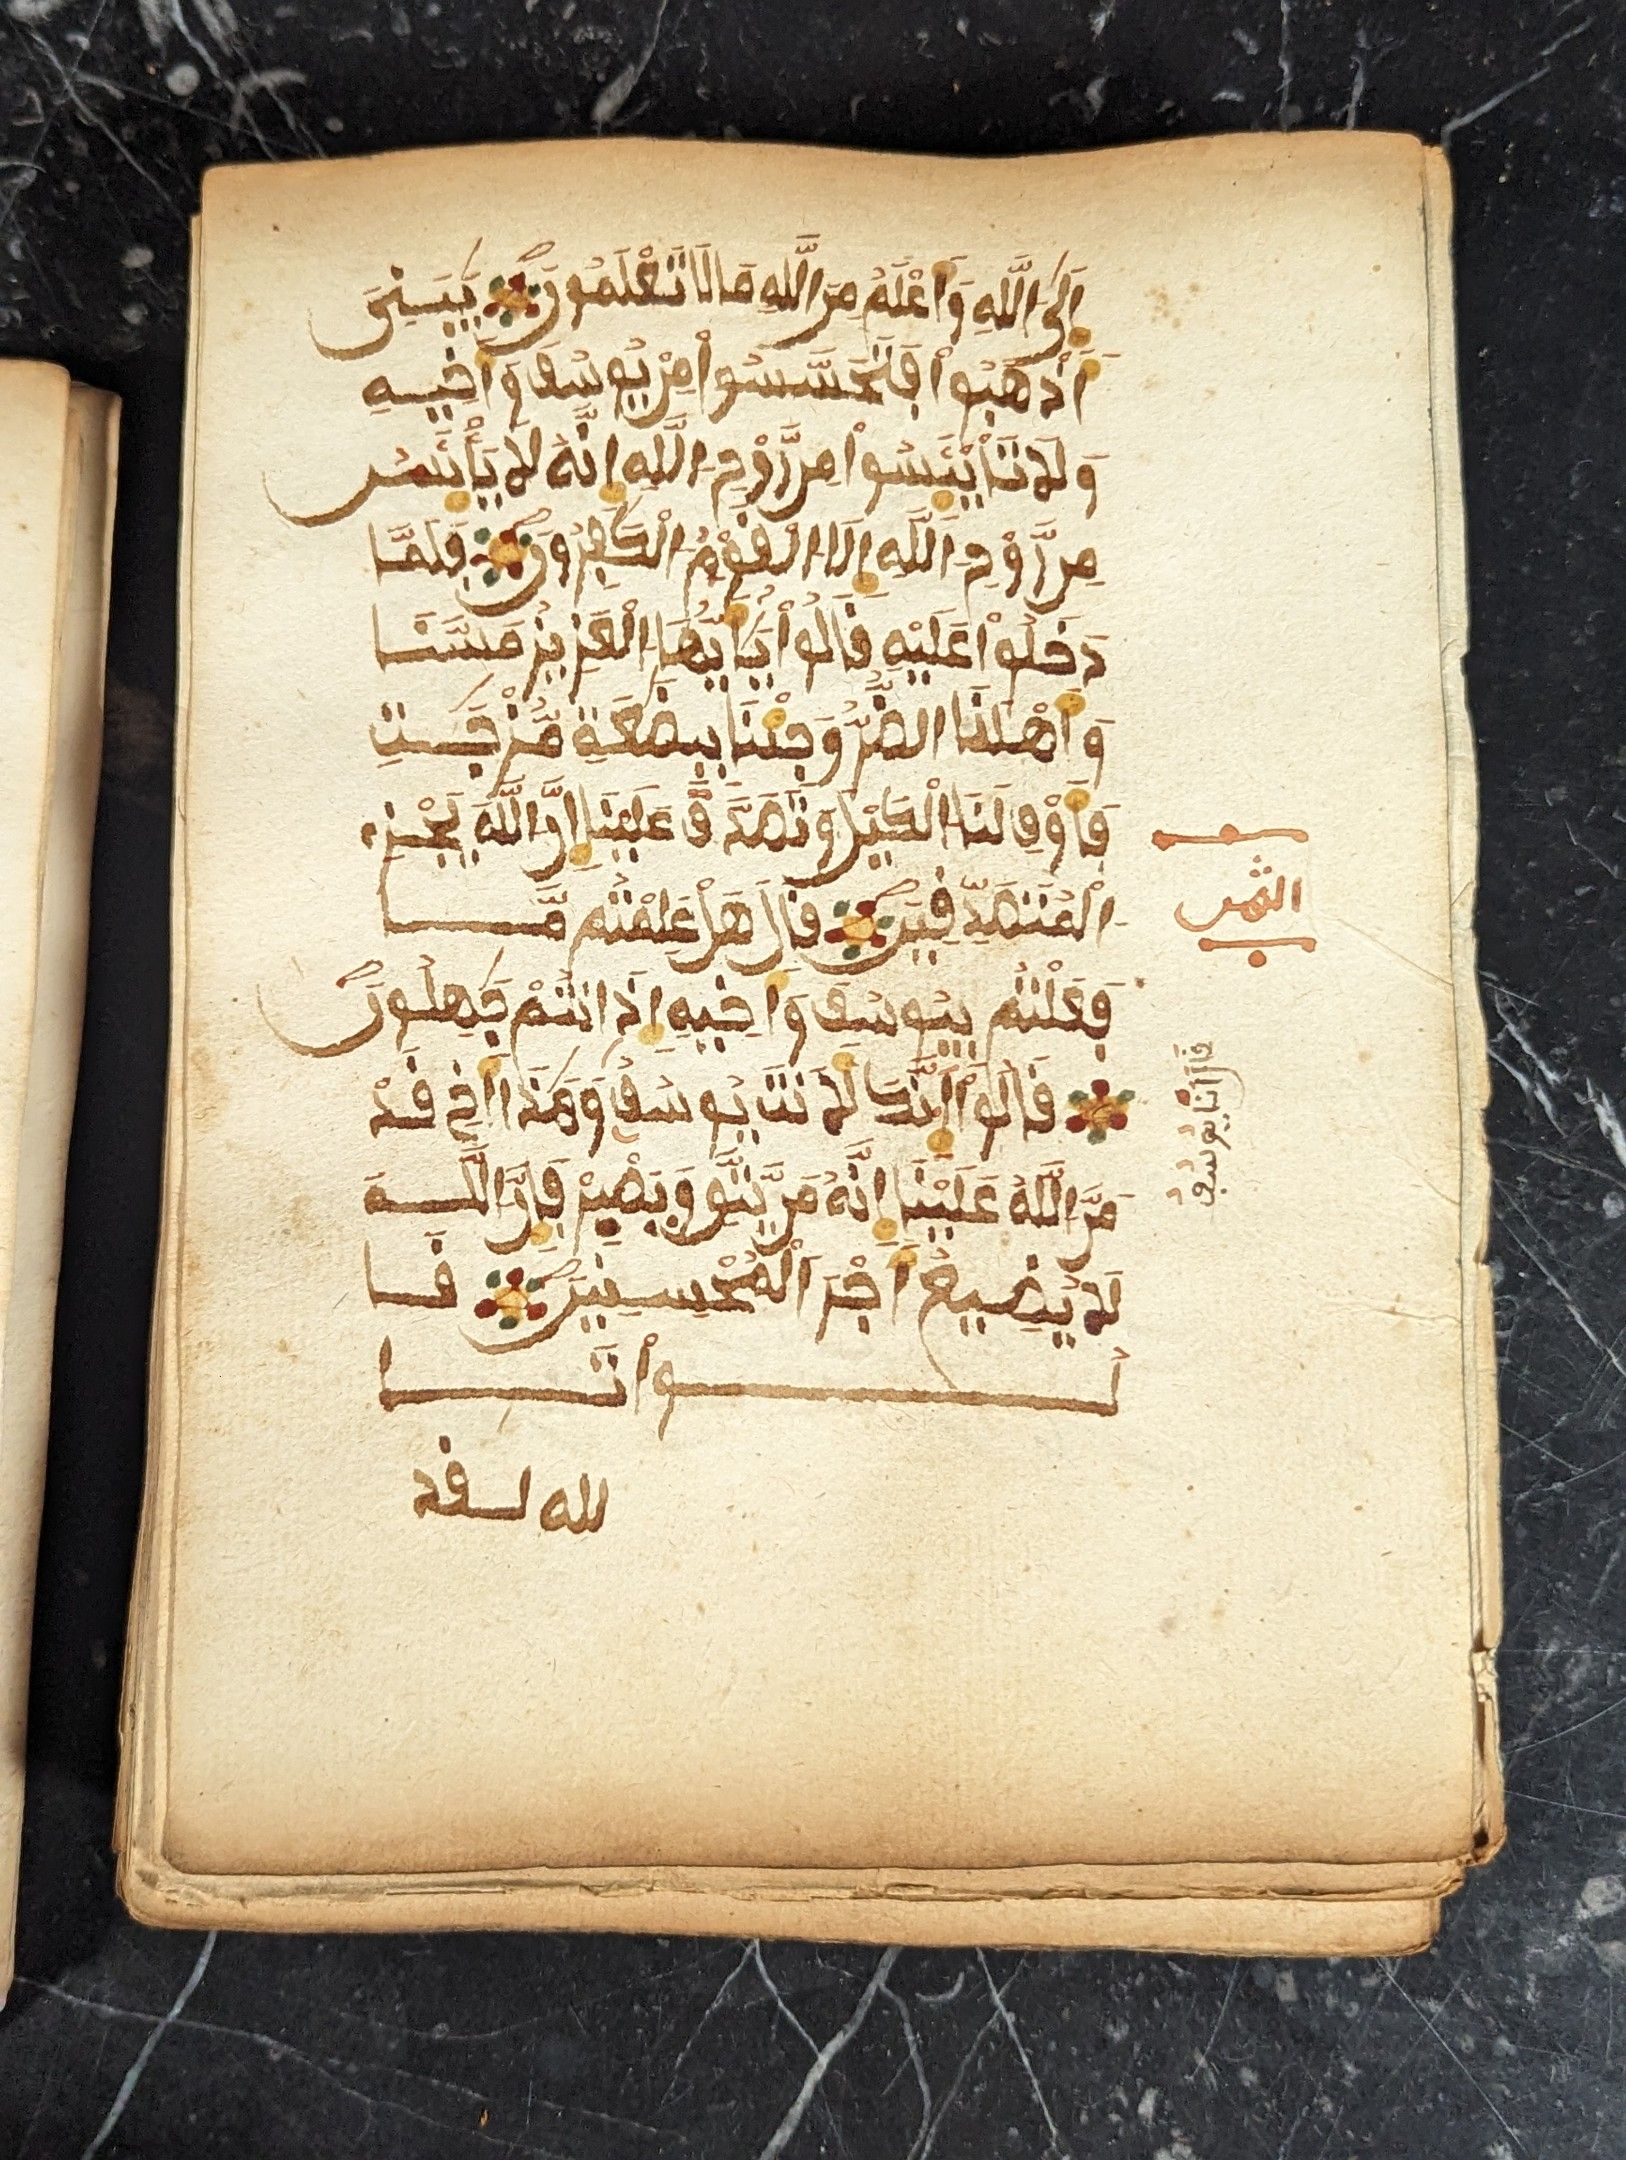 إِلَى اَللَّهِ وَأَعْلَمُ مِنَ اَللَّهِ مَا لَا تَعْلَمُونَ يَٰبَنِىَّ
اَذْهَبُواْ فَتَحَسَّسُواْ مِنْ يُوسُفَ وَأَخِيهِ
وَلَا تَاْيْـَٔسُواْ مِن رَّوْحِ اِللَّهِ إِنَّهُ لَا يَاْيْـَٔسُ
مِن رَّوْحِ اِللَّهِ إِلَّا اَلْقَوْمُ اُلْكَٰفِرُونَ فَلَمَّا
دَخَلُواْ عَلَيْهِ قَالُواْ يَٰأَيُّهَا اَلْعَزِيزُ مَسَّنَا
وَأَهْلَنَا اَلضُّرُّ وَجِئْنَا بِبِضَٰعَةٍ مُّزْجَىٰةٍ
فَأَوْفِ لَنَا اَلْكَيْلَ وَتَصَدَّقْ عَلَيْنَا إِنَّ اَللَّهَ يَجْزِے
اِلْمُتَصَدِّقِينَ قَالَ هَلْ عَلِمْتُم مَّا
فَعَلْتُم بِيُوسُفَ وَأَخِيهِ إِذَ انتُمْ جَٰهِلُونَ
قَالُواْ أَاٰنَّكَ لَأَنتَ يُوسُفُ وَهَٰذَا أَخِى قَدْ
مَنَّ اَللَّهُ عَلَيْنَا إِنَّهُ مَن يَّتَّقِ وَيَصْبِرْ فَإِنَّ اَللَّهَ
لَا يُضِيعُ أَجْرَ اَلْمُحْسِنِينَ قَا
لُواْ تَا
لله لـقد
الثمن
قَالَ أَنَا يُوسُفُ